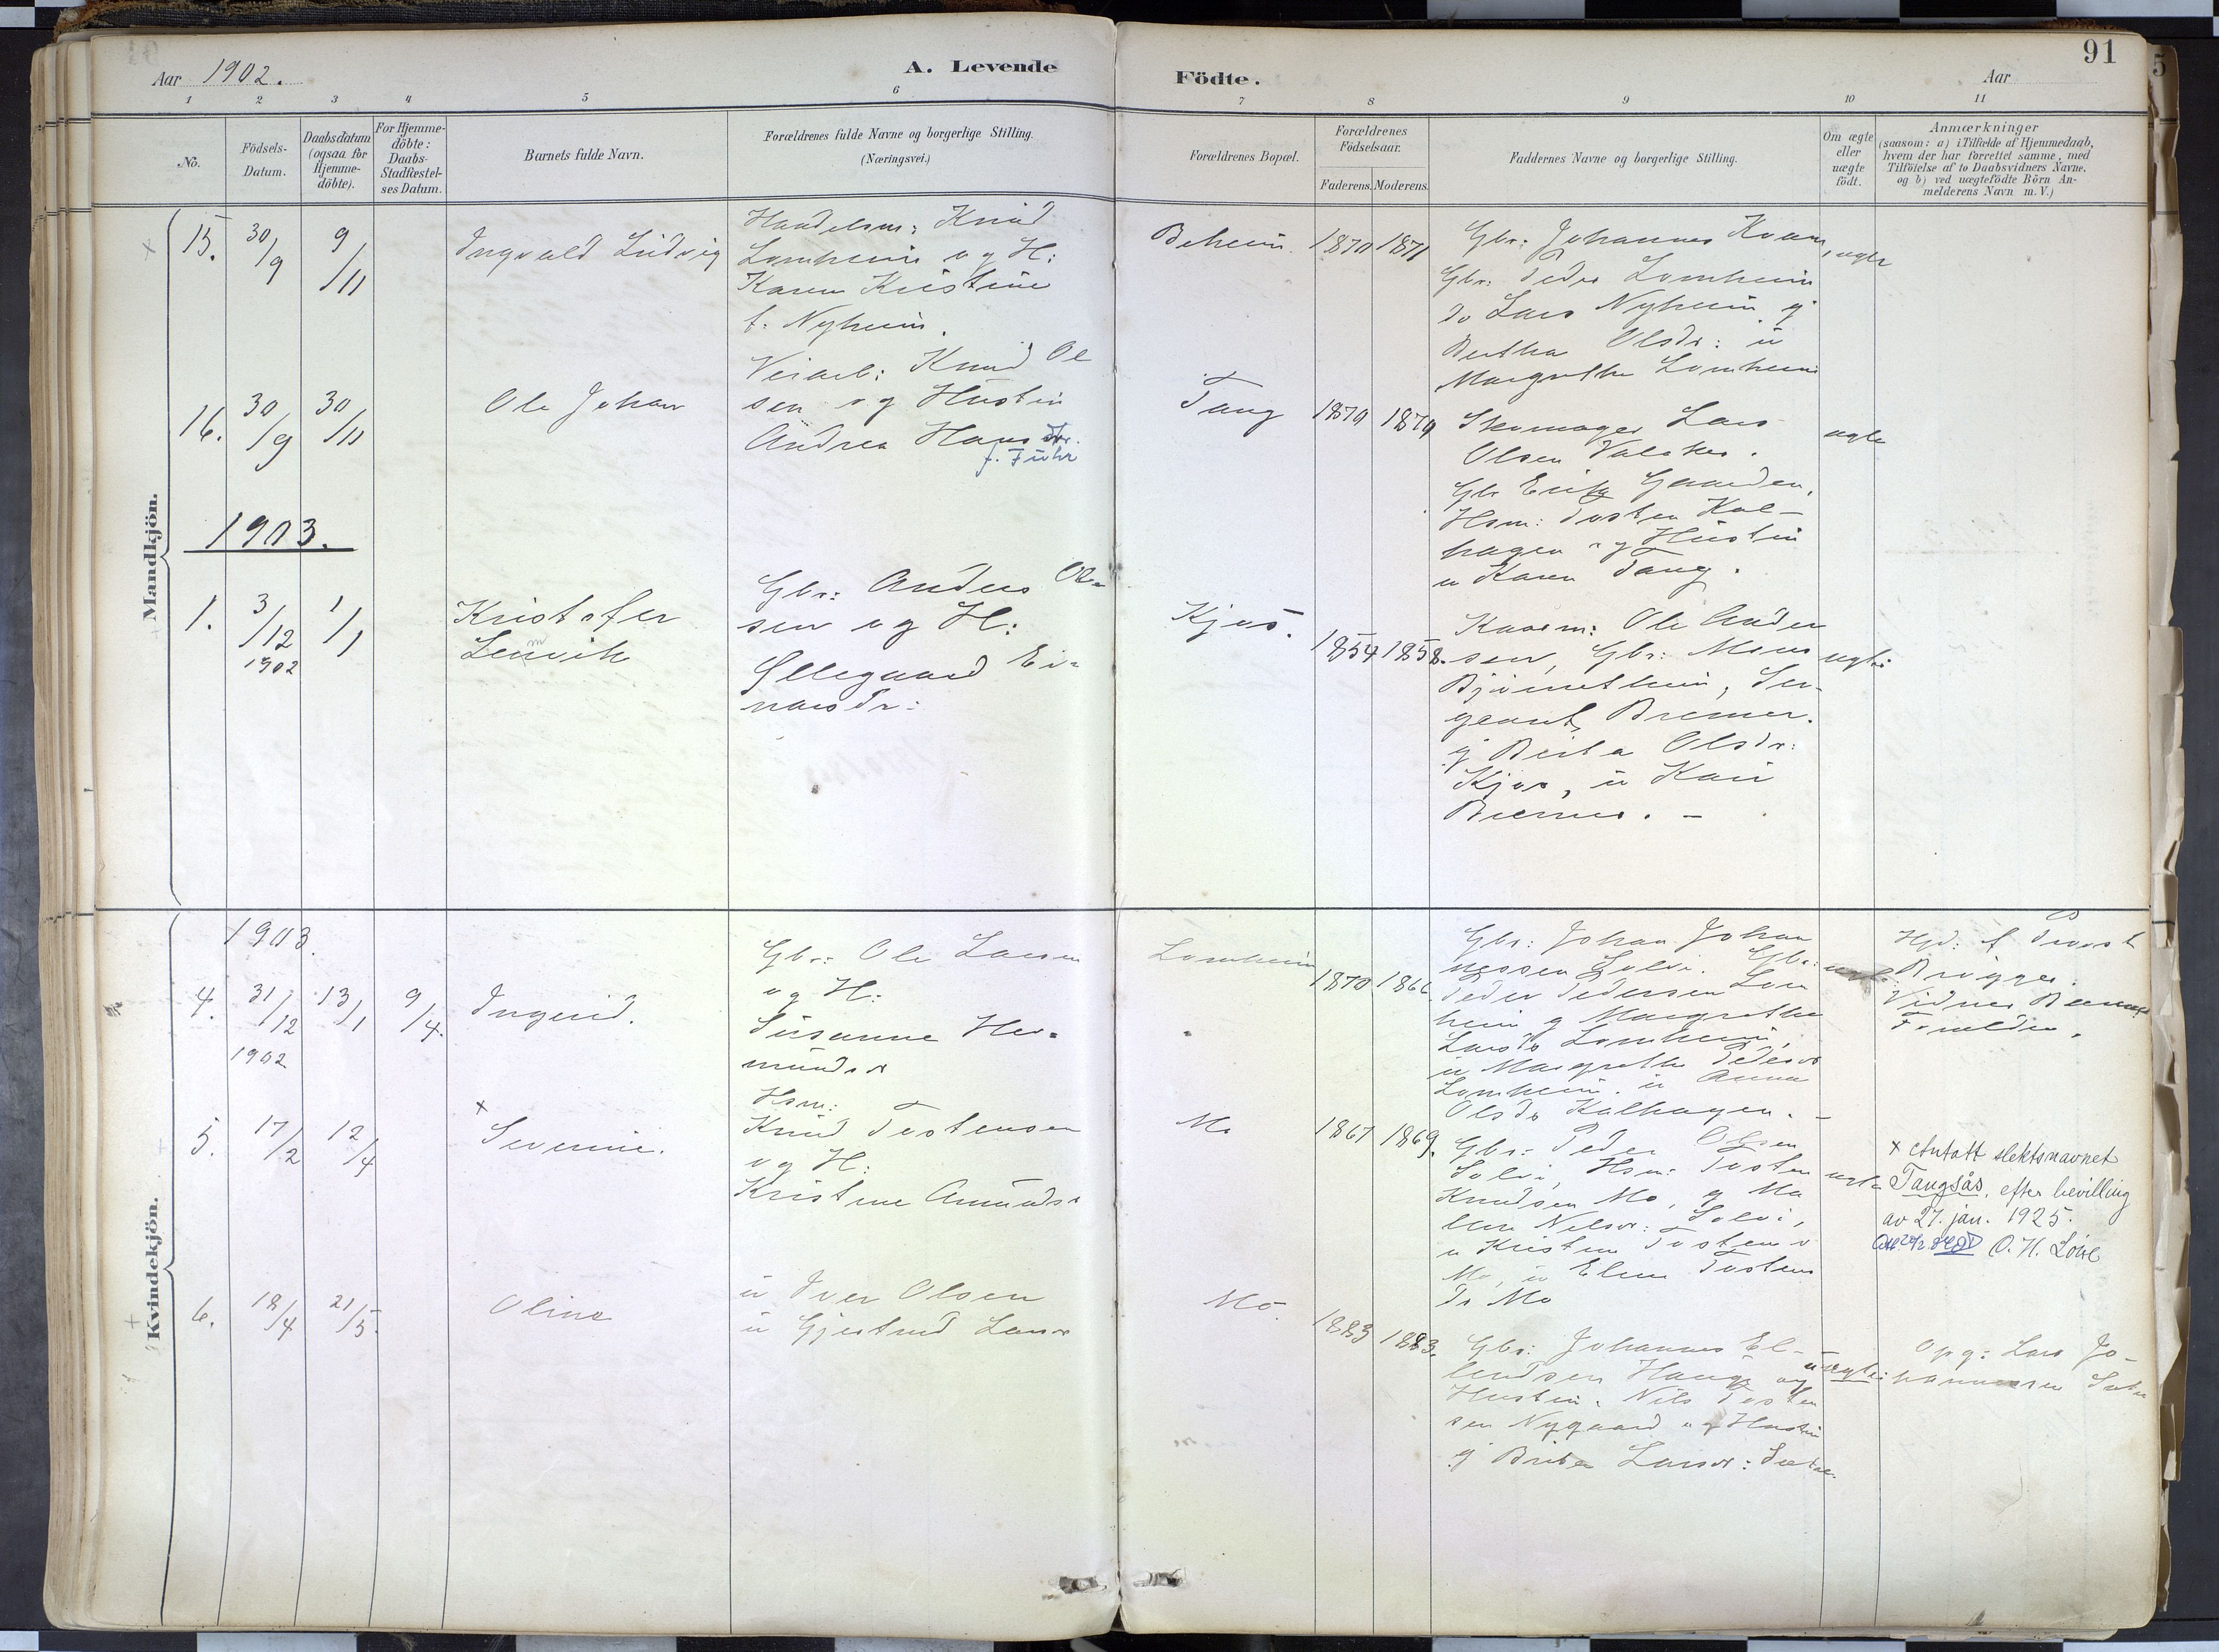 Aar 1902.
A. Levende
Födte.
Aar
91
1 2 3 4 5 6
7 8 9 10 11
No.
Födsels-
Datum.
Daabsdatum
(ogsaa for
Hjemme-
döbte).
For Hjemme-
döbte:
Daabs-
Stadfæstel-
ses Datum.
Barnets fulde Navn.
Forældrenes fulde Navne og borgerlige Stilling.
(Næringsvei.)
Forældrenes Bopæl.
Forældrenes
Födselsaar.
Faderens. Moderens.
Faddernes Navne og borgerlige Stilling.
Om ægte
eller
uægte
födt.
Anmærkninger
(saasom: a) i Tilfælde af Hjemmedaab,
hvem der har forrettet samme, med
Tilföielse af to Daabsvidners Navne,
og b) ved uægtefödte Börn An-
melderens Navn m. V.)
Mandkjön.
15. 30/9 9/11
Ingvald Ludvig
Handelsm: Knud
Lomheim og H:
Karen Kristine
f. Nyheim.
1870 1871
Gbr: Johannes Kvam,
Gbr: Peder Lomheim
do Lars Nyheim, g
Bertha Olsdr: u
Margrethe Lomheim
ægte
16. 30/9 30/11
Ole Johan
Veiarb: Knud Ol
sen og Hustru
Andrea Hansdtr.
f. Fuhr
Tang
1879 1879
Skomager Lars
Olsen
Gbr Erik Gaarden,
Hsm: Tosten Kal-
hagen og Hustru
u Karen Tang.
ægte
1903.
1. 3/12 1902 1/1
Kristofer
Lemvik
Gbr: Anders Ol-
sen og H:
Øllegaard Ei-
narsdr:
Kjos.
1854 1858.
Kaarm: Ole Ander
sen, Gbr: Mons
Ser-
geant Bremer.
g Berta Olsdr:
Kjos, u Kari
Bremer. -
ægte
Kvindekjön.
1903.
4. 31/12 1902 13/1 9/4.
Ingerid.
Gbr: Ole Larsen
og H:
Susanne Her-
mundsd
Lomheim
1870 1866
Gbr: Johan Johan
nessen Solvi. Gbr:
Peder Pedersen Lom
heim g Margrethe
Larsdr Lomheim,
u Margrethe Pedersd
Lomheim. u Anna
Olsdr Kalhagen. -
Hjd: f Provst
Brügger.
Vidner Barnets
Forældre.
5. 17/2 12/4
x
Severine.
Hsm:
Knud Tostensen
og H:
Kristine Amundsd
Mo
1867 1869.
Gbr: Peder Olsen
Solvi, Hsm: Tosten
Knudsen Mo, g Ma
Nelsdr: Solvi,
u Kristen Tostensd
Mo, u Elen Tostens
dr Mo
ægte
x Antatt slektsnavnet
Tangsås, efter bevilling
av 27. jan. 1925.
O. H. Loise
6. 18/4 21/5.
Oline
u Iver Olsen
u Gjertrud Larsd
Mo.
1883 1883.
Gbr: Johannes El-
lendsen Hauge og
Hustru. Nils Tosten
sen Nygaard og Hustru
g Brita Larsd:
uægte:
Opg: Lars Jo-
hannessen